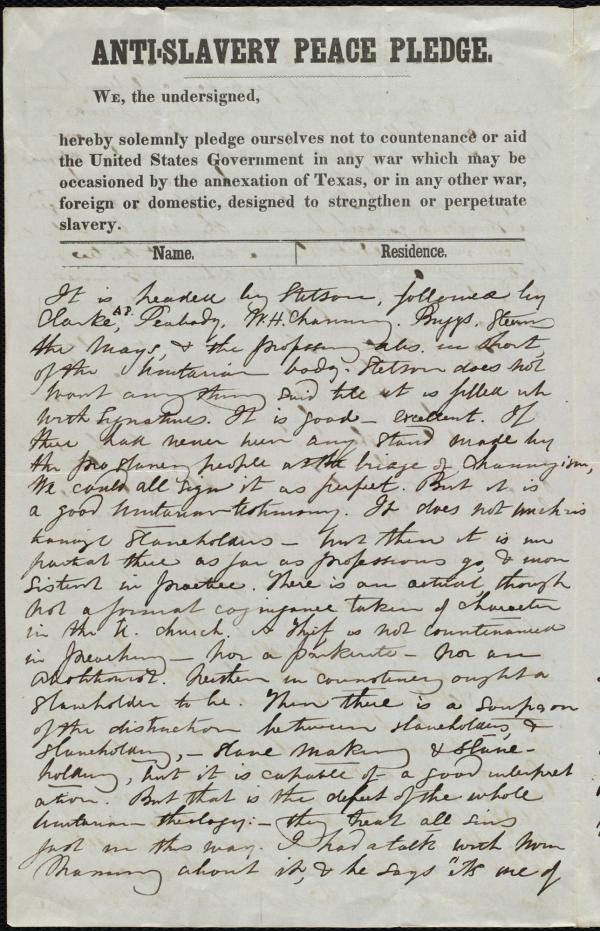 ANTI-SLAVERY PEACE PLEDGE.
WE, the undersigned,
hereby solemnly pledge ourselves not to countenance or aid
the United States Government in any war which may be
occasioned by the annexation of Texas, or in any other war,
foreign or domestic, designed to strengthen or perpetuate
slavery.
Name. Residence.
It is headed by Stetson, followed by
Clarke, A.P. Peabody, W.H. Channing. Briggs,
the Mays, & the in short,
of the Unitarian body. Stetson does not
want any thing said till it is filled up
with signatures. It is good - excellent. If
there had never been any stand made by
the pro slavery people at the bridge of Channingism,
we could all sign it as perfect. But it is
a good Unitarian testimony. It does not
slaveholders - but then it is
there as far as professions go, &
in practice. There is an actual, though
not a formal cognizance taken of character
in the U. church. A thief is not countenanced
in preaching - nor a - nor an
abolitionist. Neither in consistency ought a
slaveholder to be. Then there is a
of the distinction between slaveholders, &
slaveholding, - slave making & slave-
holding, but it is capable of a good interpret
ation. But that is the defect of the whole
Unitarian theology: - they treat all sins
just in this way. I had a talk with
about it, & he says "it's one of